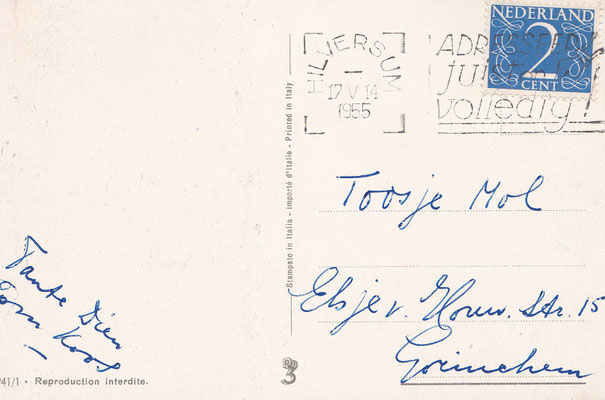 NEDERLAND
2
CENT
HILVERSUM
17 V 14
1955
ADRESSEER
juist
volledig!
Toosje Mol
Elsje v. Houw. Str. 15
Gorinchem
Tante Dien
Oom Koos
Stampato in Italia - Importé d'Italie - Printed in Italy
3
41/1 • Reproduction interdite.